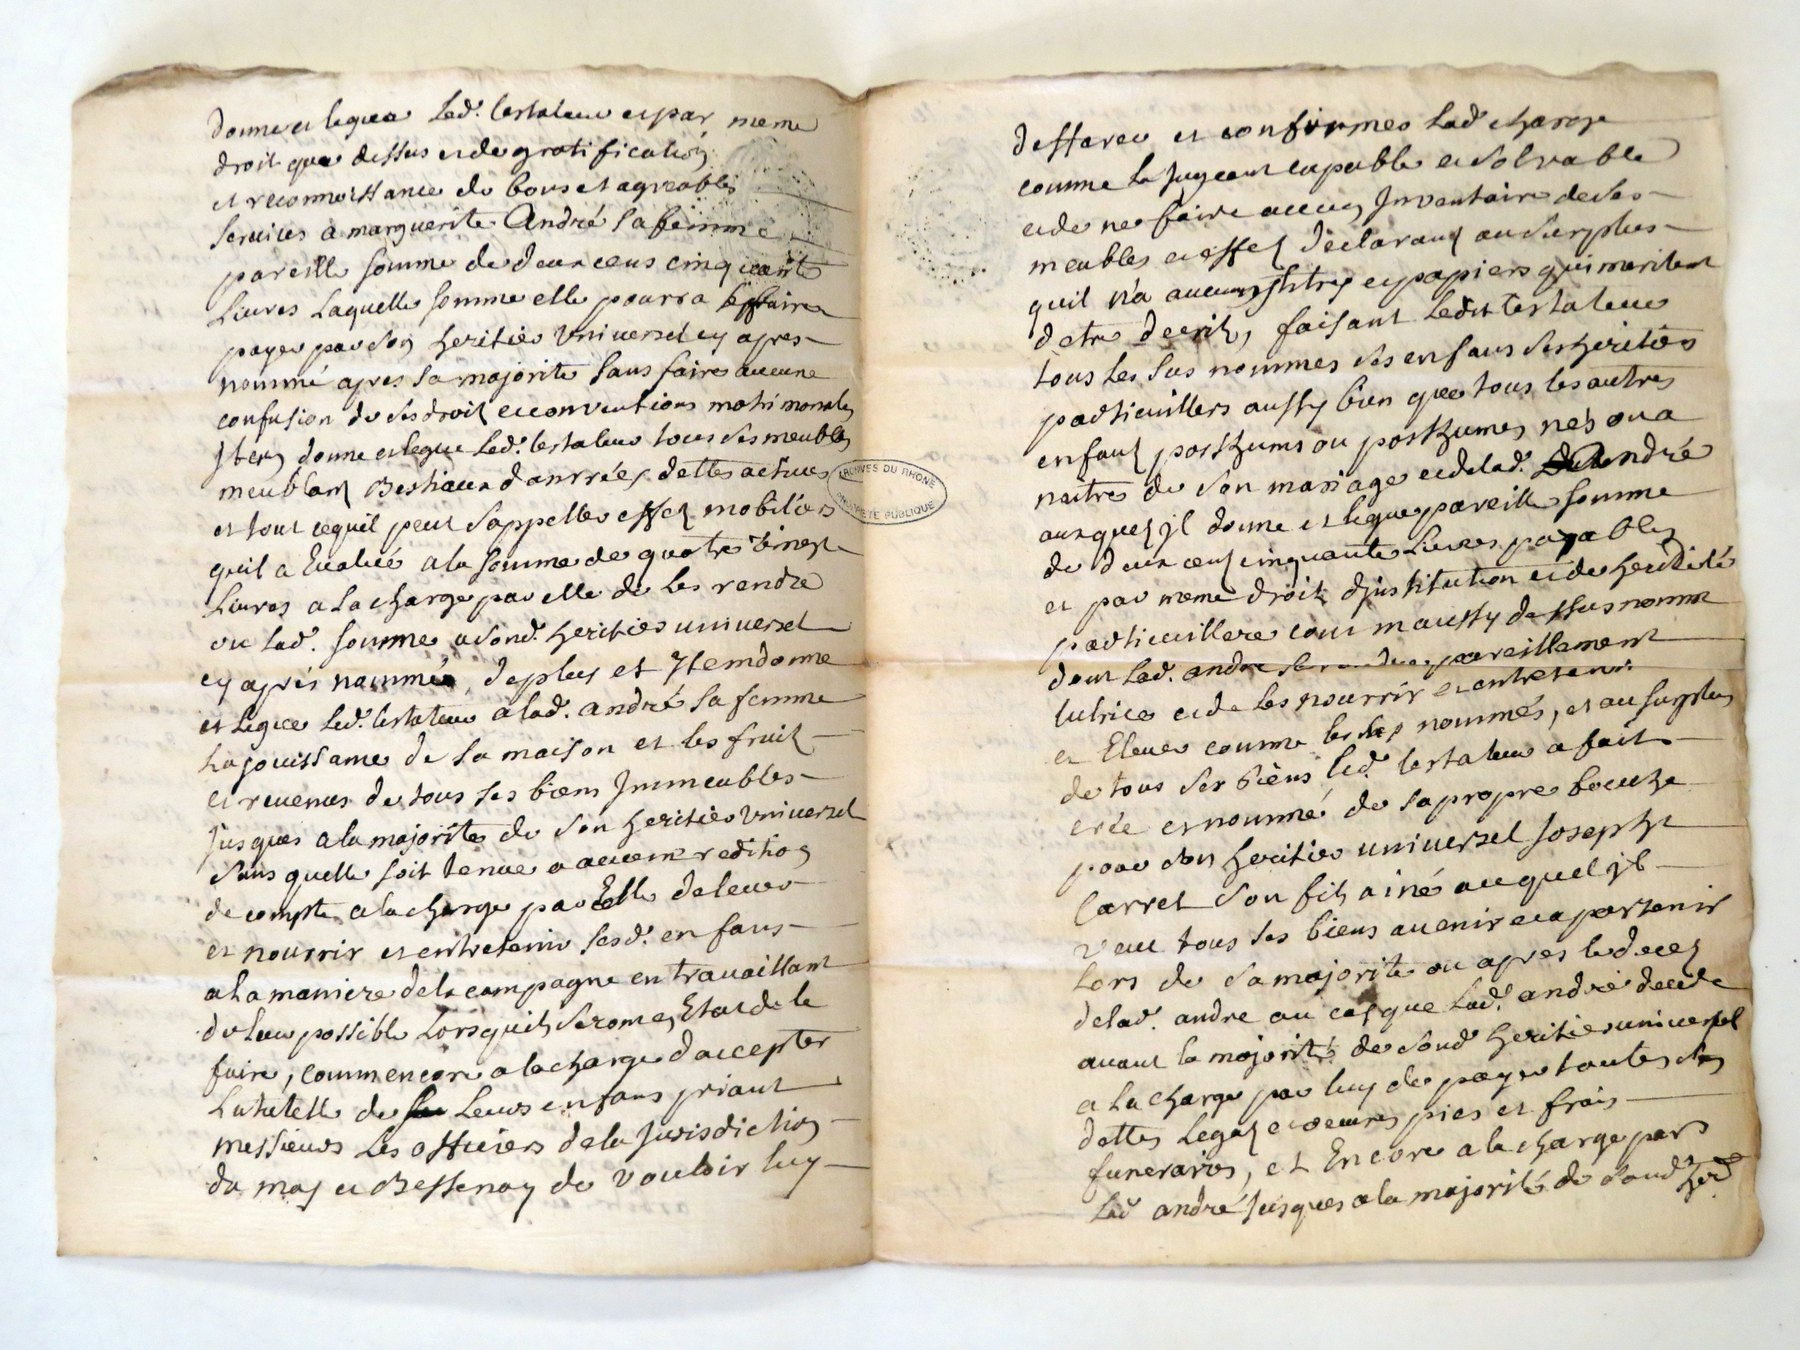 donne et legue Led. testateur et par meme
droit que dessus et de gratification
et reconnoissance de bons et agreables
services a marguerite André sa femme
pareille somme de deux cens cinquante
Livres Laquelle somme elle pourra se faire
payer par son heritier universel cy apres
nommé apres sa majorite sans faire aucune
confusion de ses droit et conventions matrimonales
Item donne et legue Led. testateur tous ses meubles
meublans Bestiaux danrrées dettes actives
et tout ce quil peut sappeller effets mobiliers
quil a Evalué a la somme de quatre vingt
Livres a la charge par elle de les rendre
ou lad. somme a sond. heritier universel
cy après nommé, de plus et Item donne
et Legue led. testateur a lad. andré sa femme
La jouissance de sa maison et les fruit
et revenus de tous ses biens Immeubles
jusques a la majorite de son heritier universel
sans quelle soit tenue a aucune redition
de compte a la charge par Elle de lever
et nourrir et entretenir sesd. enfans
a la maniere de la campagne en travaillant
de leur possible Lorsquils seront en Etat de le
faire, comm encore a la charge daccepter
La tutelle de leurs enfans priant
messieurs Les officiers de la Jurisdiction
du mas et Bessenay de vouloir luy
ARCHIVES DU RHONE
PROPRIETE PUBLIQUE
defferer et confirmer Lad charge
comme la jugeant capable et solvable
et de ne faire aucun Inventaire de ses
meubles et effets declarant au surplus
quil n'a aucuns titres et papiers qui meritent
detre decrit, faisant Ledit testateur
tous Les sus nommes ses enfans ses heritiers
particuillers aussy bien que tous les autres
enfans posthums ou posthumes nés ou a
naitre de son mariage et de lad. André
ausquels jl donne et legue pareille somme
de deux cens cinquante Livres payables
et par meme droit djnstitution et de heredité
particuillere comm aussy dessus nommé
dont Lad. andre se rendra pareillement
tutrice et de les nourrir et entretenir
et Elever comme les nommés, et au surplus
de tous ses biens led. testateur a fait
crée et nommé de sa propre bouche
pour son heritier universel Joseph
Carret son fils ainé auquel jl
veut tous ses biens avenir et apartenir
Lors de sa majorite ou apres le deces
de lad. andre au cas que Lad. andre decede
avant la majorité de sond heritier universel
a la charge par luy de payer toutes ses
dettes Legats et oeuvres pies et frais
funeraires, et Encore a la charge par
Lad andré jusques a la majorité de sond her